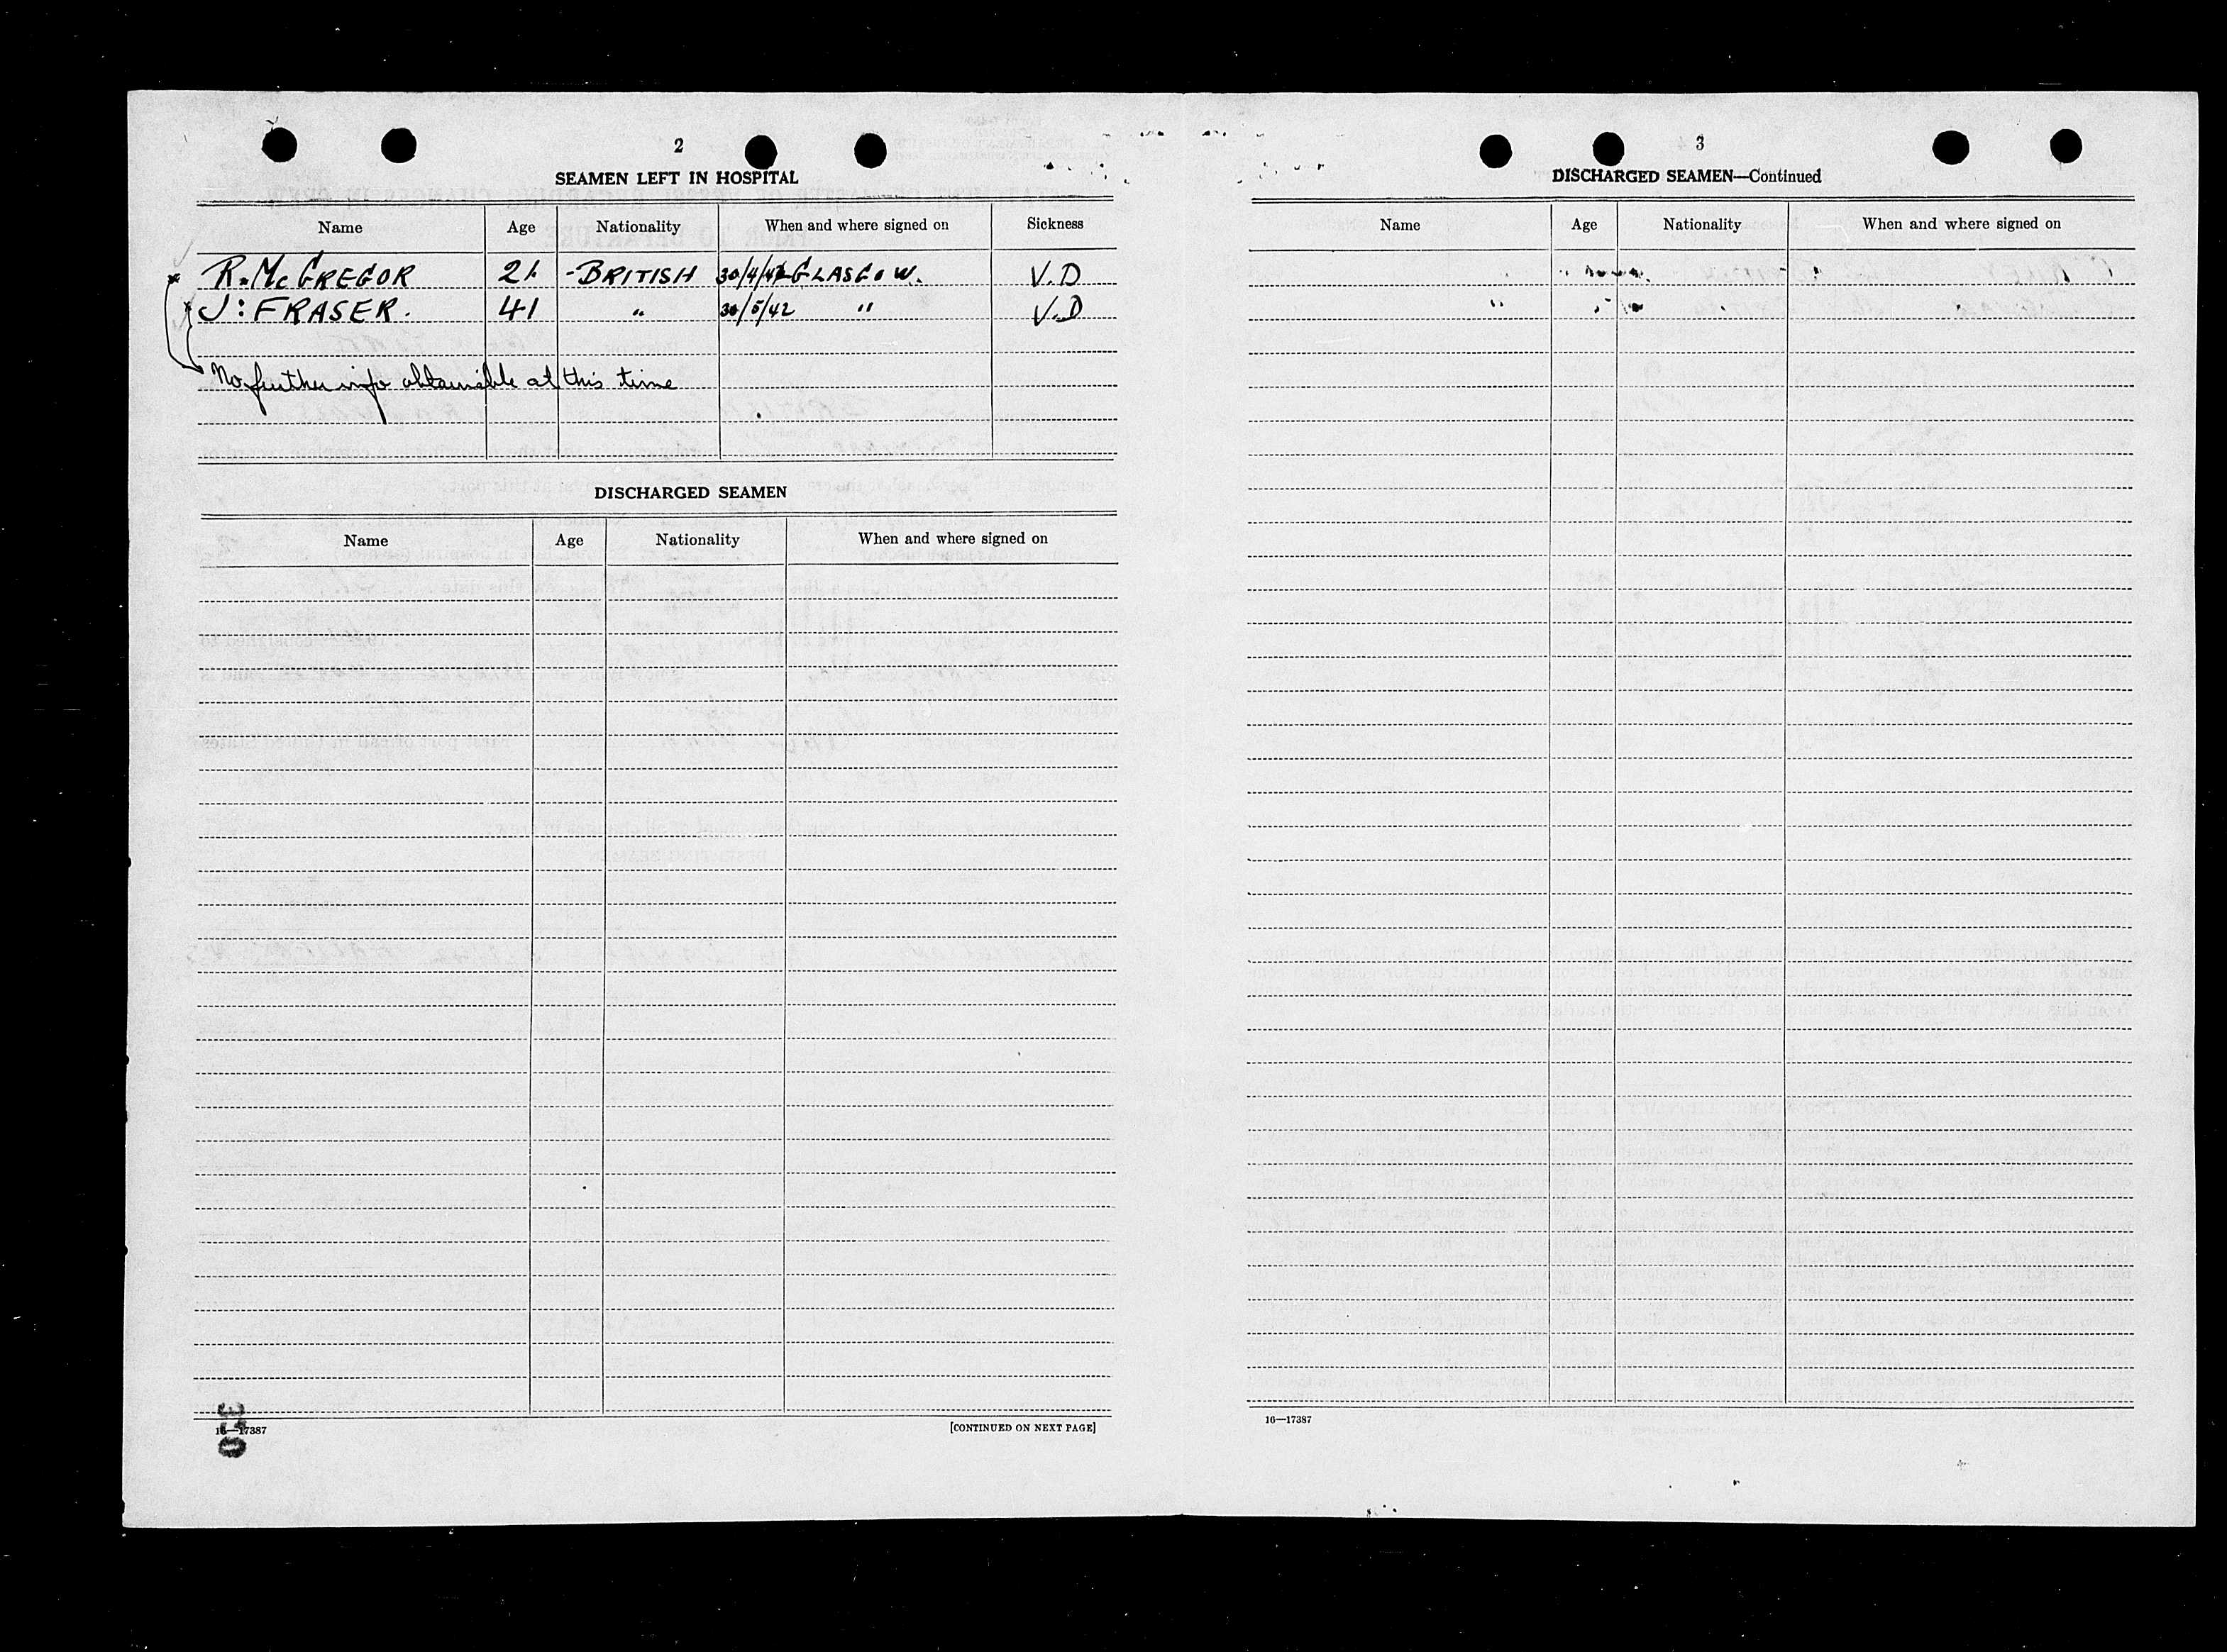 2
SEAMEN LEFT IN HOSPITAL
Name Age Nationality When and where signed on Sickness
R. McGREGOR 21 - BRITISH 30/4/42 GLASGOW. V.D
J: FRASER. 41 " 30/5/42 " V.D
No further info obtainable at this time
DISCHARGED SEAMEN
Name Age Nationality When and where signed on
350
16—17387
[CONTINUED ON NEXT PAGE]
3
DISCHARGED SEAMEN—Continued
Name Age Nationality When and where signed on
16—17387